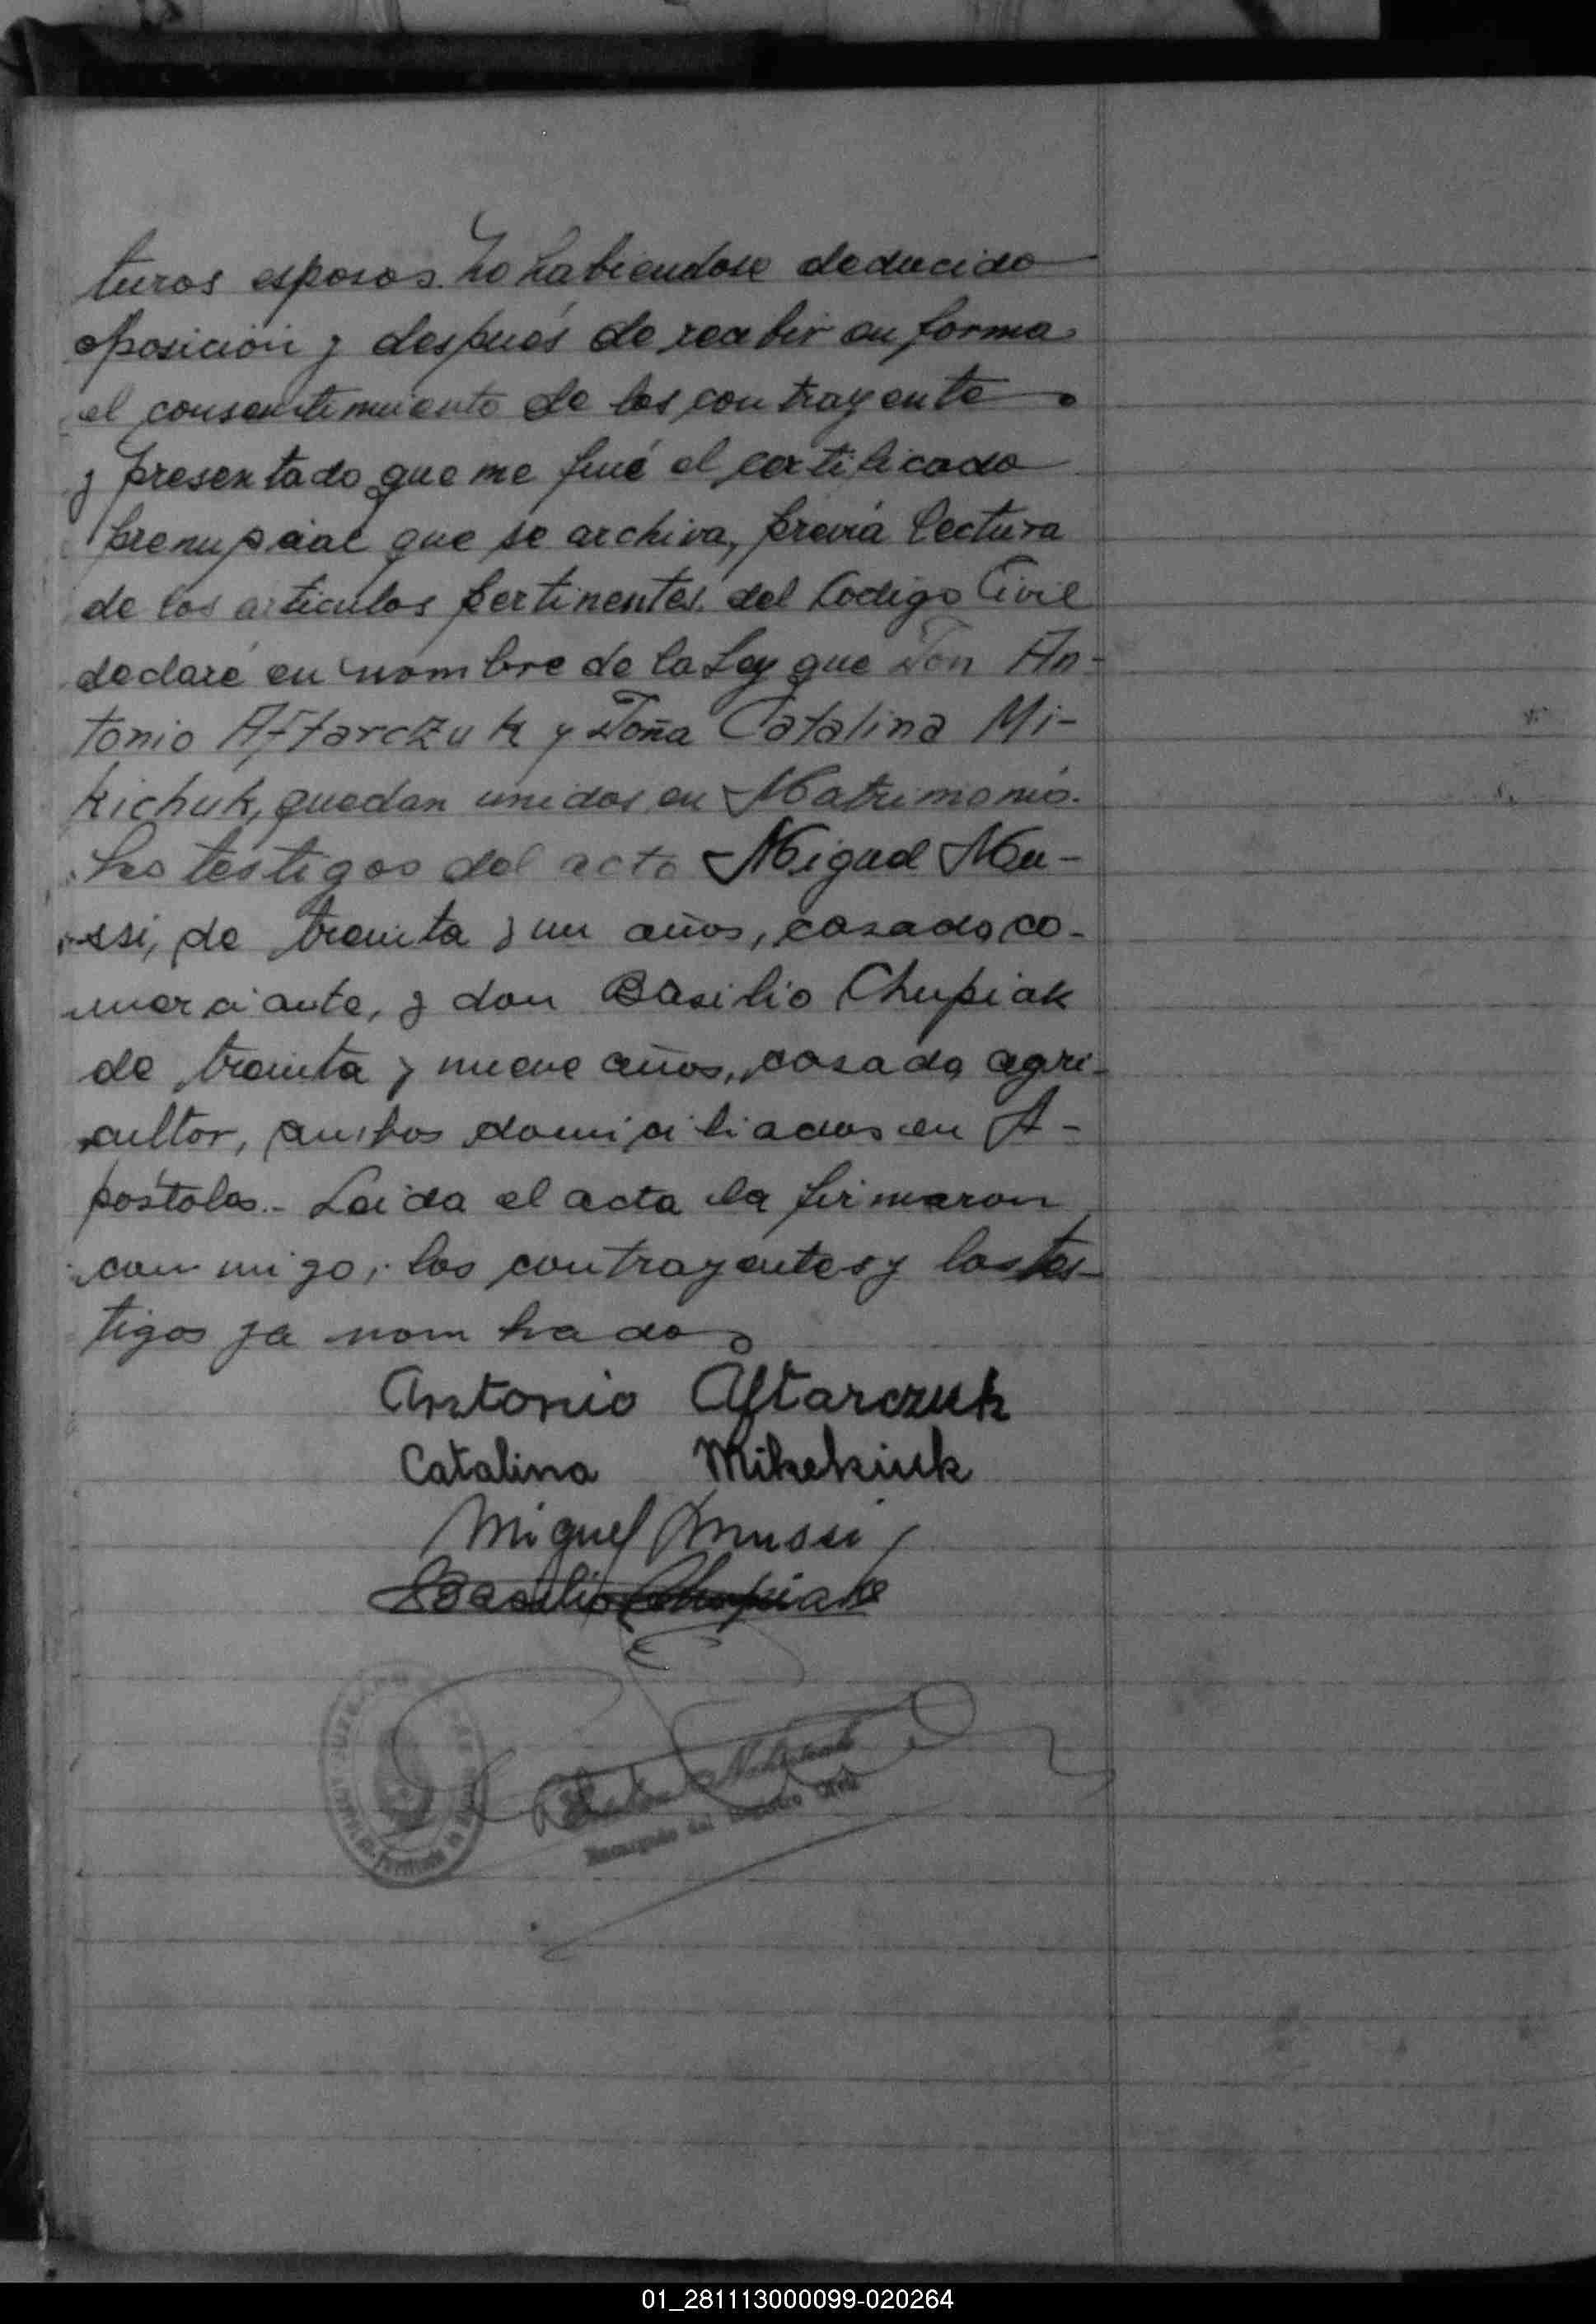 turos esposos. No habiendose deducido
oposición y después de recibir en forma
el consentimiento de los contrayentes
y presentado que me fué el certificado
prenupcial que se archiva, previa lectura
de los articulos pertinentes del Codigo Civil
declaré en nombre de la Ley que Don An-
tonio Aftarczuk y Doña Catalina Mi-
kichuk, quedan unidos en Matrimonio.
Los testigos del acto Miguel Mu-
ssi, de treinta y un años, casado, co-
merciante, y don Basilio Chupiak
de treinta y nueve años, casado, agri-
cultor, ambos domiciliados en A-
postoles.- Leida el acta la firmaron
conmigo, los contrayentes y los tes-
tigos ya nombrados
Antonio Aftarczuk
Catalina Mikekiuk
Miguel Mussi
Basilio Chupiak
Encargado del Registro Civil
01_281113000099-020264